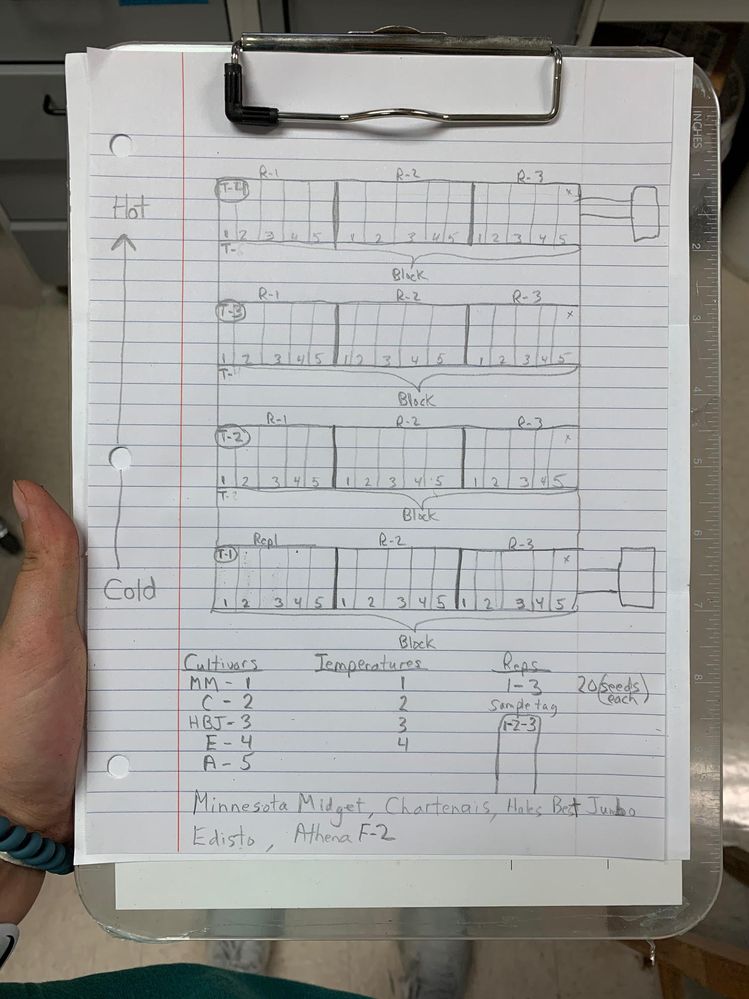 R-1 R-2 R-3
T-4 x
Hot
1 2 3 4 5 1 2 3 4 5 1 2 3 4 5
T-
Block
R-1 R-2 R-3
T-3 x
1 2 3 4 5 1 2 3 4 5 1 2 3 4 5
T-
Block
R-1 R-2 R-3
T-2 x
1 2 3 4 5 1 2 3 4 5 1 2 3 4 5
T-
Block
Rep1 R-2 R-3
T-1 x
Cold
1 2 3 4 5 1 2 3 4 5 1 2 3 4 5
Block
Cultivars Temperatures Reps
MM - 1 1 1-3 20 (seeds each)
C - 2 2 Sample tag
HBJ - 3 3 1-2-3
E - 4 4
A - 5
Minnesota Midget, Chartenais, Hales Best Jumbo
Edisto, Athena F-2
INCHES
1
2
3
4
5
6
7
8